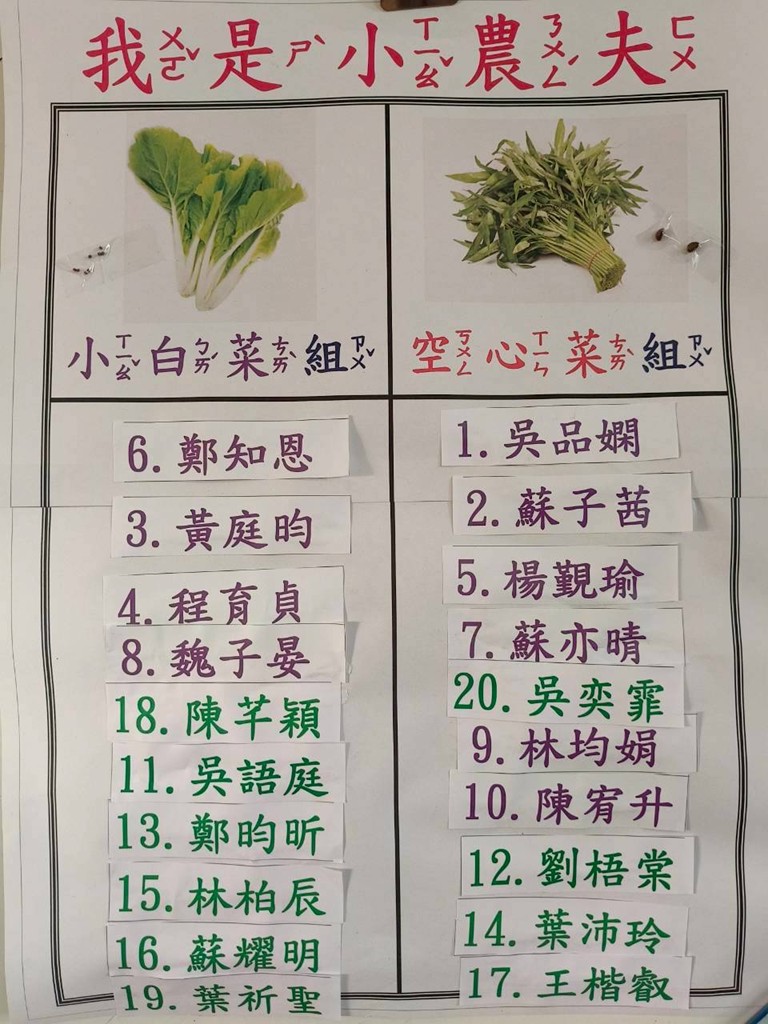 我ㄨㄛˇ是ㄕˋ小ㄒㄧㄠˇ農ㄋㄨㄥˊ夫ㄈㄨ
小ㄒㄧㄠˇ白ㄅㄞˊ菜ㄘㄞˋ組ㄗㄨˇ
6.鄭知恩
3.黃庭昀
4.程育貞
8.魏子晏
18.陳芊穎
11.吳語庭
13.鄭昀昕
15.林柏辰
16.蘇耀明
19.葉祈聖
空ㄎㄨㄥ心ㄒㄧㄣ菜ㄘㄞˋ組ㄗㄨˇ
1.吳品嫻
2.蘇子茜
5.楊覲瑜
7.蘇亦晴
20.吳奕霏
9.林均娟
10.陳宥升
12.劉梧棠
14.葉沛玲
17.王楷叡